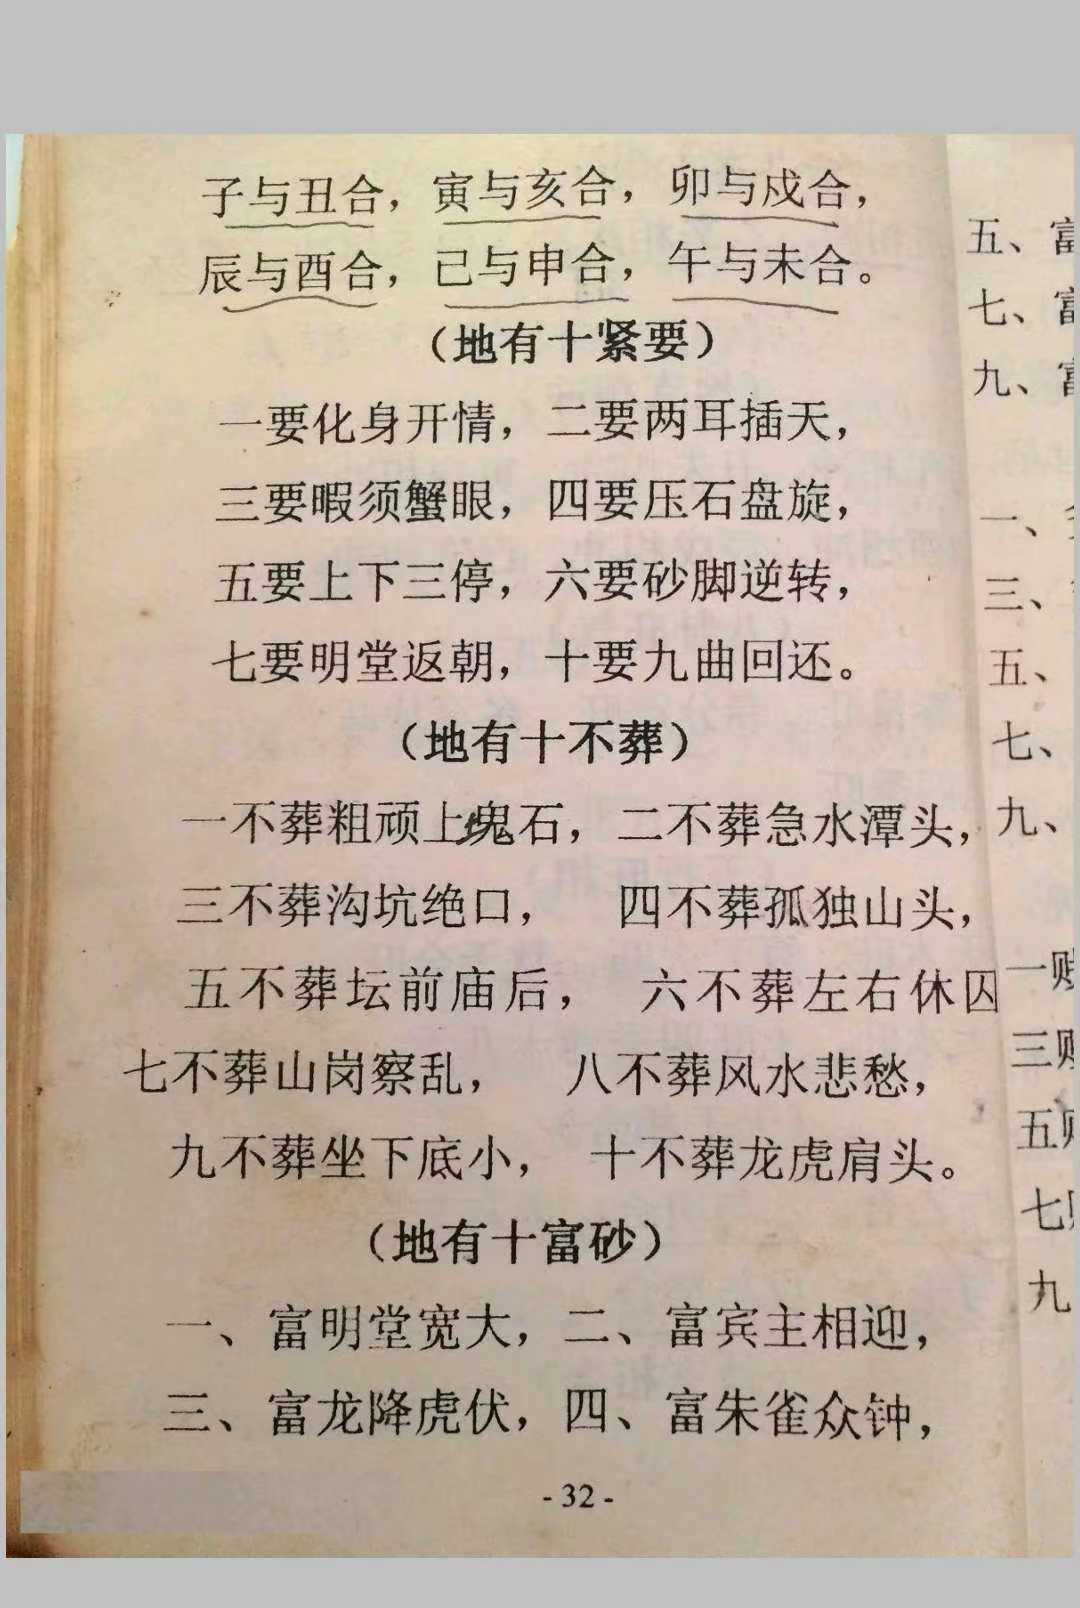 子与丑合，寅与亥合，卯与戍合，
辰与酉合，已与申合，午与未合。
（地有十紧要）
一要化身开情，二要两耳插天，
三要暇须蟹眼，四要压石盘旋，
五要上下三停，六要砂脚逆转，
七要明堂返朝，十要九曲回还。
（地有十不葬）
一不葬粗顽上塊石，二不葬急水潭头，
三不葬沟坑绝口，四不葬孤独山头，
五不葬坛前庙后，六不葬左右休囚
七不葬山岗察乱，八不葬风水悲愁，
九不葬坐下底小，十不葬龙虎肩头。
（地有十富砂）
一、富明堂宽大，二、富宾主相迎，
三、富龙降虎伏，四、富朱雀众钟，
- 32 -
五、富
七、富
九、富
一、
三、
五、
七、
九、
一贱
三贱
五贱
七贱
九